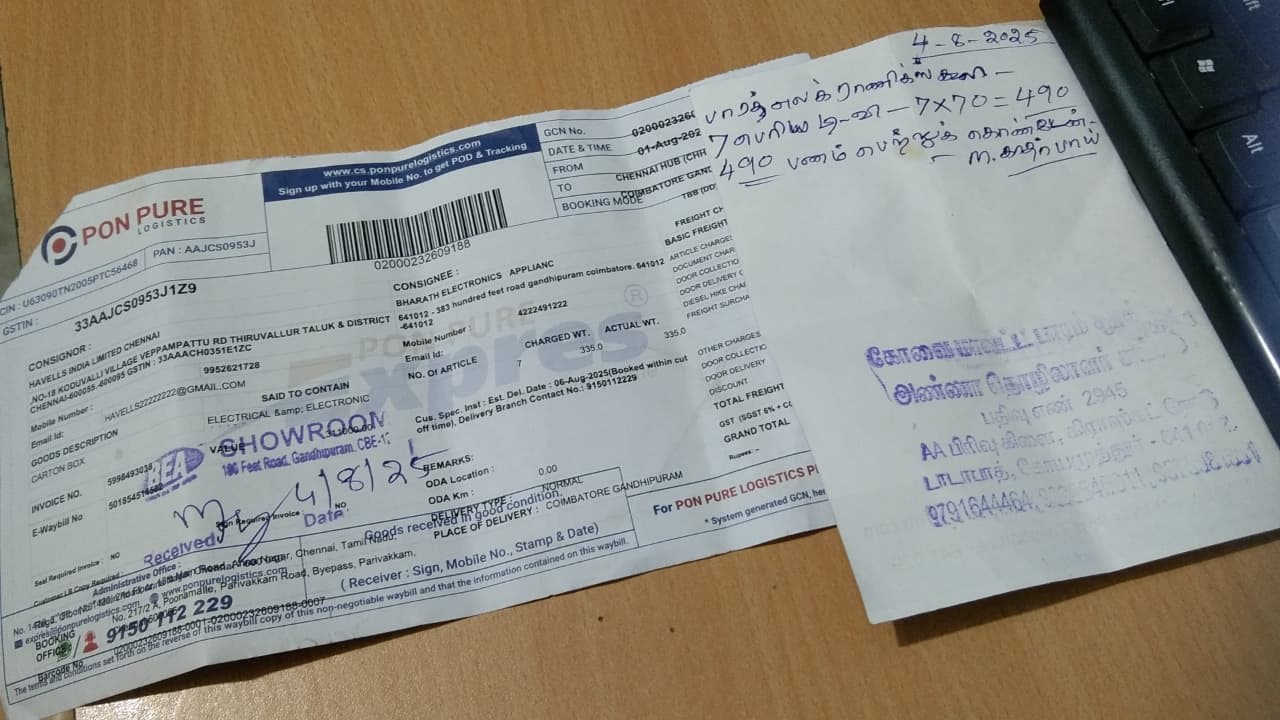 www.cs.ponpurelogistics.com
Sign up with your Mobile No. to get POD & Tracking
PON PURE
LOGISTICS
CIN : U63090TN2005PTC56468
PAN : AAJCS0953J
GSTIN : 33AAJCS0953J1Z9
02000232609188
GCN No. 0200023260
DATE & TIME 01-Aug-202
FROM CHENNAI HUB (CHH
TO COIMBATORE GAND
BOOKING MODE TBB (DD
CONSIGNOR :
HAVELLS INDIA LIMITED CHENNAI
,NO-18 KODUVALLI VILLAGE VEPPAMPATTU RD THIRUVALLUR TALUK & DISTRICT
CHENNAI-600055-600095 GSTIN : 33AAACH0351E1ZC
Mobile Number : 9952621728
Email Id: HAVELLS22222222@GMAIL.COM
GOODS DESCRIPTION SAID TO CONTAIN
CARTON BOX ELECTRICAL &amp; ELECTRONIC
VALUE
INVOICE NO. 5998493036
E-Waybill No
Seal Required Invoice : NO
Customer LR Copy Required
CONSIGNEE :
BHARATH ELECTRONICS APPLIANC
641012 - 383 hundred feet road gandhipuram coimbatore. 641012
-641012
Mobile Number : 4222491222
Email Id:
NO. OF ARTICLE CHARGED WT. ACTUAL WT.
7 335.0 335.0
Cus. Spec. Inst : Est. Del. Date : 06-Aug-2025(Booked within cut
off time), Delivery Branch Contact No.: 9150112229
REMARKS:
ODA Location : 0.00
ODA Km :
DELIVERY TYPE : NORMAL
PLACE OF DELIVERY : COIMBATORE GANDHIPURAM
PON PURE
Expres
®
FREIGHT CH
BASIC FREIGHT
ARTICLE CHARGES
DOCUMENT CHAR
DOOR COLLECTIO
DOOR DELIVERY C
DIESEL HIKE CHAR
FREIGHT SURCHA
OTHER CHARGES
DOOR COLLECTION
DOOR DELIVERY
DISCOUNT
TOTAL FREIGHT
GST (SGST 6% + CG
GRAND TOTAL
Rupees: -
For PON PURE LOGISTICS P
* System generated GCN, her
BEA SHOWROOM
Feet Road, Gandhipuram, CBE-12
4/8/25
Received Date:
Goods received in good condition.
( Receiver : Sign, Mobile No., Stamp & Date)
Administrative Office :
www.ponpurelogistics.com
No. 217/2 A, Poonamalle, Parivakkam Road, Byepass, Parivakkam,
BOOKING
OFFICE
9150 112 229
Barcode No 02000232609188-0001-02000232609188-0007
The terms and conditions set forth on the reverse of this non-negotiable waybill and that the information contained on this waybill.
4-8-2025
பாரத் எலக்ராணிக்ஸ் கூலி -
7 பெரிய டி-வி - 7x70 = 490
490 பணம் பெற்றுக் கொண்டேன்-
கோவை மாவட்ட
அண்ணா தொழிலாளர்
பதிவு எண் 2945
AA பிரிவு கிளை, கிராஸ்கட் ரோடு
டாடாபாத், கோயமுத்தூர் -
9791644464,
Alt